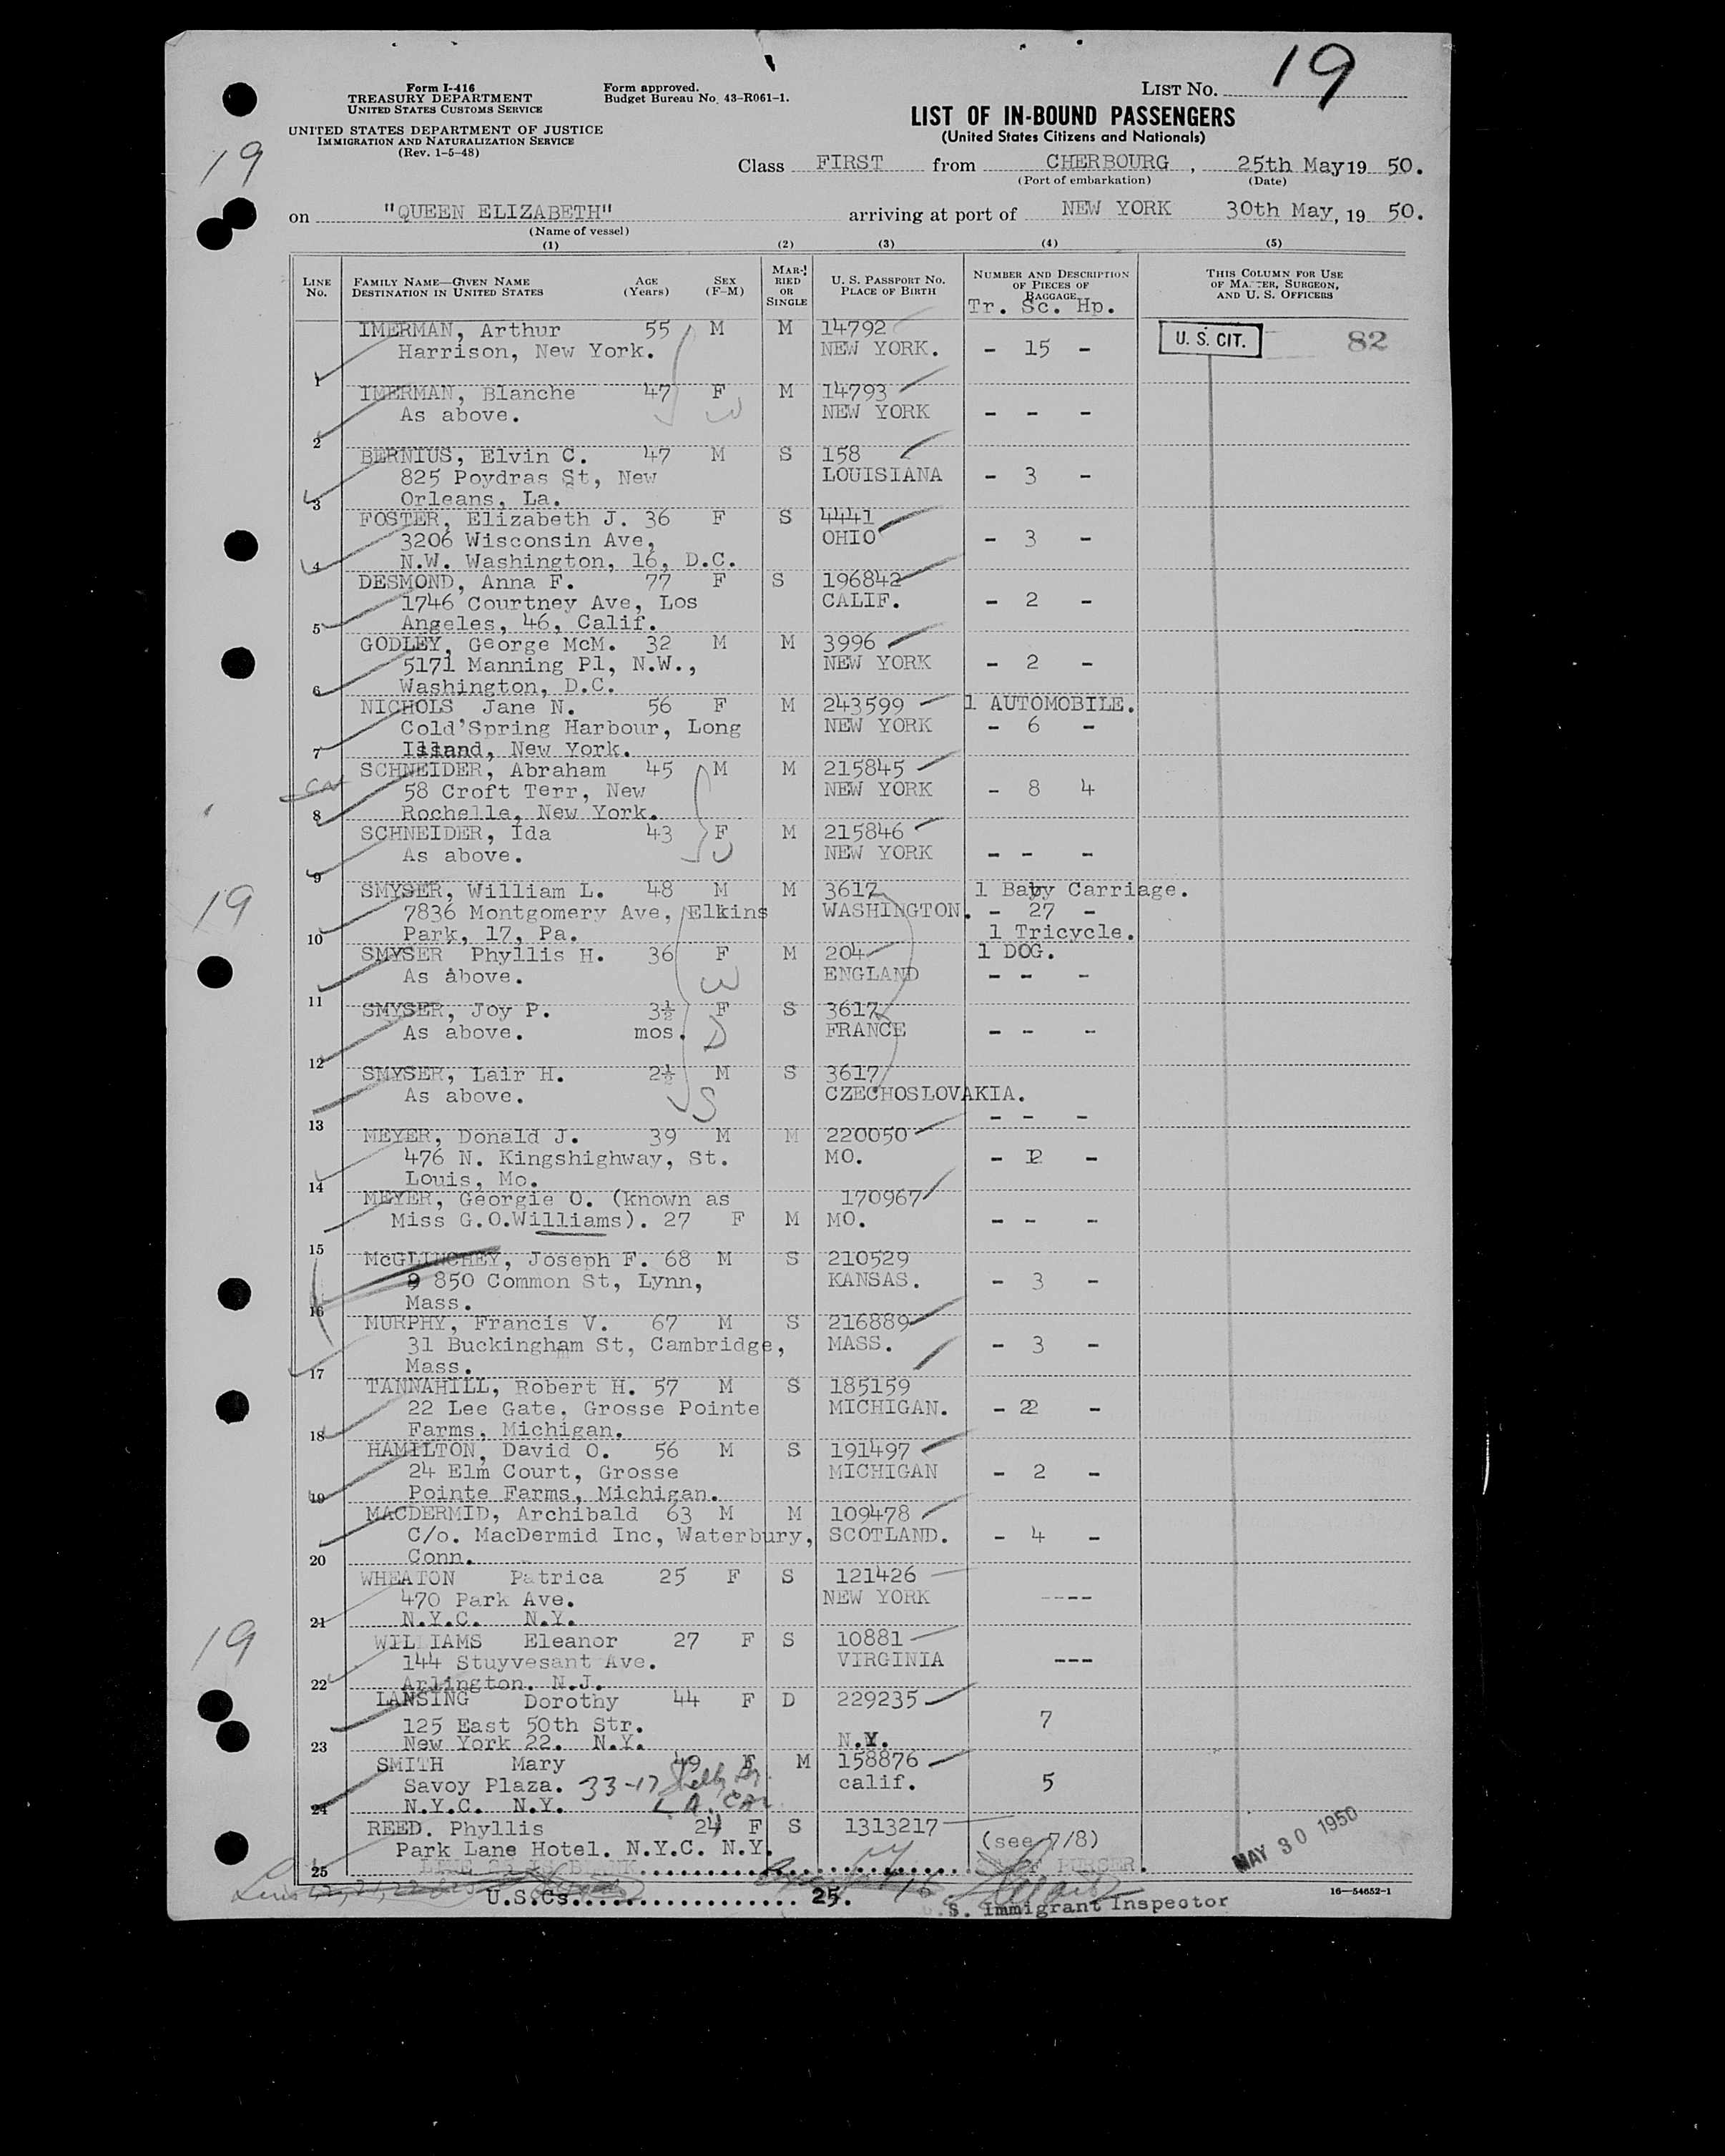 19
LIST NO.
Form I-416
TREASURY DEPARTMENT
UNITED STATES CUSTOMS SERVICE
Form approved.
Budget Bureau No. 43-R061-1.
UNITED STATES DEPARTMENT OF JUSTICE
IMMIGRATION AND NATURALIZATION SERVICE
(Rev. 1-5-48)
19
LIST OF IN-BOUND PASSENGERS
(United States Citizens and Nationals)
Class FIRST from CHERBOURG, 25th May 19 50.
(Port of embarkation) (Date)
on "QUEEN ELIZABETH" arriving at port of NEW YORK 30th May, 19 50.
(Name of vessel)
(1) (2) (3) (4) (5)
LINE No. FAMILY NAME—GIVEN NAME DESTINATION IN UNITED STATES AGE (Years) SEX (F-M) MARRIED OR SINGLE U. S. PASSPORT NO. PLACE OF BIRTH NUMBER AND DESCRIPTION OF PIECES OF BAGGAGE THIS COLUMN FOR USE OF MASTER, SURGEON, AND U. S. OFFICERS
Tr. Sc. Hp.
IMERMAN, Arthur 55 M M 14792 U. S. CIT. 82
Harrison, New York. NEW YORK. - 15 -
1
IMERMAN, Blanche 47 F M 14793
As above. W NEW YORK - - -
2
BERNIUS, Elvin C. 47 M S 158
825 Poydras St, New LOUISIANA - 3 -
3 Orleans, La.
FOSTER, Elizabeth J. 36 F S 4441
3206 Wisconsin Ave, OHIO - 3 -
4 N.W. Washington, 16, D.C.
DESMOND, Anna F. 77 F S 196842
1746 Courtney Ave, Los CALIF. - 2 -
5 Angeles, 46, Calif.
GODLEY, George McM. 32 M M 3996
5171 Manning Pl, N.W., NEW YORK - 2 -
6 Washington, D.C.
NICHOLS Jane N. 56 F M 243599 1 AUTOMOBILE.
Cold'Spring Harbour, Long NEW YORK - 6 -
7 Island, New York.
SCHNEIDER, Abraham 45 M M 215845
58 Croft Terr, New NEW YORK - 8 4
8 Rochelle, New York.
SCHNEIDER, Ida 43 F M 215846
As above. W NEW YORK - - -
9
19
SMYSER, William L. 48 M M 3617 1 Baby Carriage.
7836 Montgomery Ave, Elkins WASHINGTON. - 27 -
10 Park, 17, Pa. 1 Tricycle.
SMYSER Phyllis H. 36 F M 204 1 DOG.
As above. W ENGLAND - - -
11
SMYSER, Joy P. 3½ F S 3617
As above. mos. D FRANCE - - -
12
SMYSER, Lair H. 2½ M S 3617
As above. S CZECHOSLOVAKIA.
13 - - -
MEYER, Donald J. 39 M M 220050
476 N. Kingshighway, St. MO. - 12 -
14 Louis, Mo.
MEYER, Georgie O. (known as 170967
Miss G.O.Williams). 27 F M MO. - - -
15
McGLINCHEY, Joseph F. 68 M S 210529
850 Common St, Lynn, KANSAS. - 3 -
16 Mass.
MURPHY, Francis V. 67 M S 216889
31 Buckingham St, Cambridge, MASS. - 3 -
17 Mass.
TANNAHILL, Robert H. 57 M S 185159
22 Lee Gate, Grosse Pointe MICHIGAN. - 2 -
18 Farms, Michigan.
HAMILTON, David O. 56 M S 191497
24 Elm Court, Grosse MICHIGAN - 2 -
19 Pointe Farms, Michigan.
MACDERMID, Archibald 63 M M 109478
C/o. MacDermid Inc, Waterbury, SCOTLAND. - 4 -
20 Conn.
WHEATON Patrica 25 F S 121426
470 Park Ave. NEW YORK ----
21 N.Y.C. N.Y.
19
WILLIAMS Eleanor 27 F S 10881
144 Stuyvesant Ave. VIRGINIA ---
22 Arlington. N.J.
LANSING Dorothy 44 F D 229235
125 East 50th Str. 7
23 New York 22. N.Y. N.Y.
SMITH Mary 49 F M 158876
Savoy Plaza. 33-17 calif. 5
24 N.Y.C. N.Y. L.A. Cal.
REED. Phyllis 24 F S 1313217
Park Lane Hotel. N.Y.C. N.Y. (see 7/8)
25 PURSER.
MAY 30 1950
U.S.Cs. 25.
S. Immigrant Inspector
16—54652-1